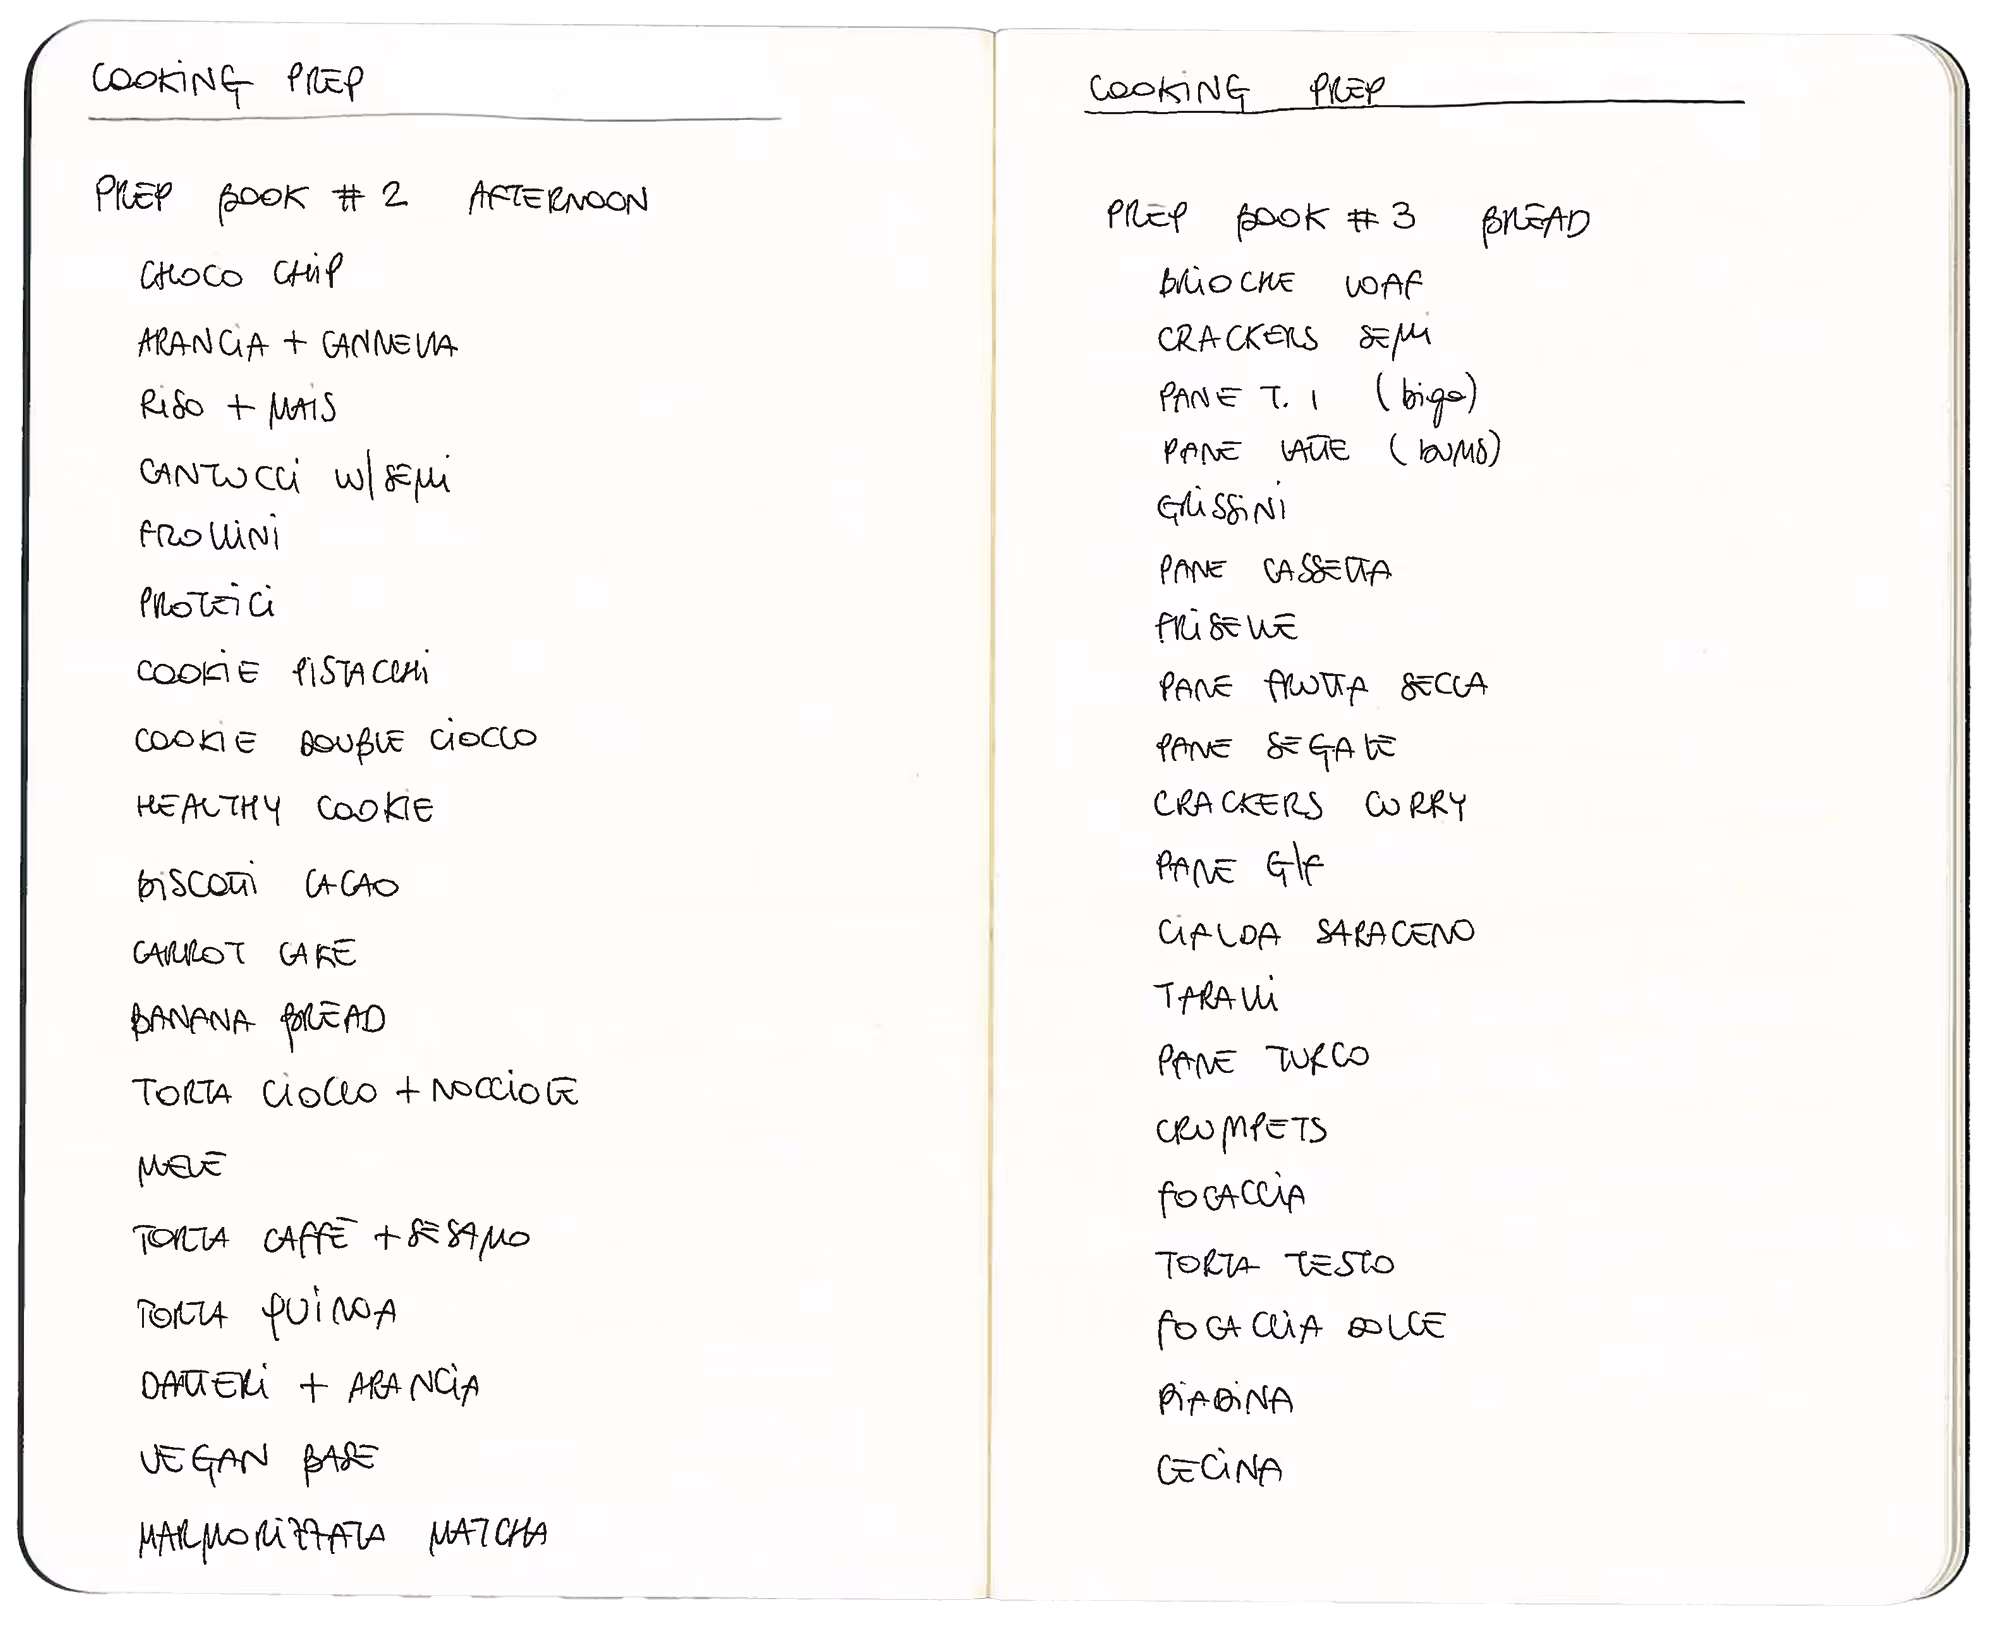 COOKING PREP
PREP BOOK # 2 AFTERNOON
CHOCO CHIP
ARANCIA + CANNELLA
RISO + MAIS
CANTUCCI W/SEMI
FROLLINI
PROTEICI
COOKIE PISTACCHI
COOKIE DOUBLE CIOCCO
HEALTHY COOKIE
BISCOTTI CACAO
CARROT CAKE
BANANA BREAD
TORTA CIOCCO + NOCCIOLE
MELE
TORTA CAFFÈ + SESAMO
TORTA QUINOA
DATTERI + ARANCIA
VEGAN BASE
MARMORIZZATA MATCHA
COOKING PREP
PREP BOOK # 3 BREAD
BRIOCHE LOAF
CRACKERS SEMI
PANE T. 1 (biga)
PANE LATTE (BUNS)
GRISSINI
PANE CASSETTA
FRISELLE
PANE FRUTTA SECCA
PANE SEGALE
CRACKERS CURRY
PANE G/F
CIALDA SARACENO
TARALLI
PANE TURCO
CRUMPETS
FOCACCIA
TORTA TESTO
FOCACCIA DOLCE
PIADINA
CECINA